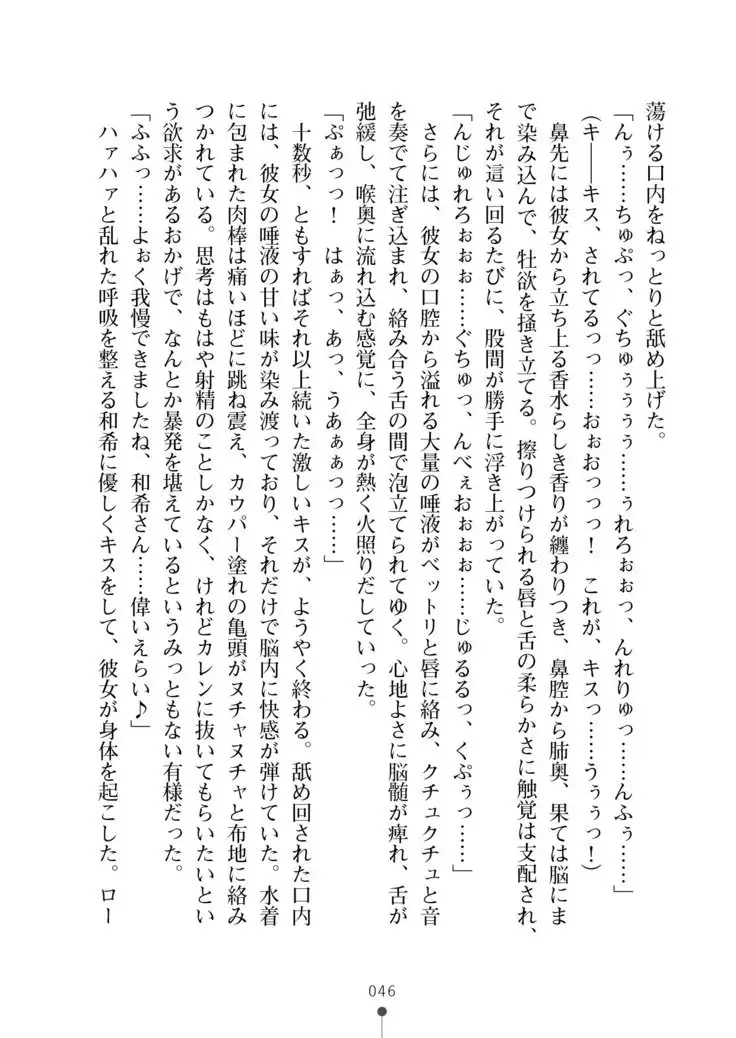 蕩ける口内をねっとりと舐め上げた。
「んぅ……ちゅぷっ、ぐちゅぅぅぅ……ぅれろぉぉっ、んれりゅっ……んふぅ……」
(キ――キス、されてるっっ……おぉおっっっ！　これが、キスっ……うぅぅっ！)
　鼻先には彼女から立ち上る香水らしき香りが纏わりつき、鼻腔から肺奥、果ては脳にま
で染み込んで、牡欲を掻き立てる。擦りつけられる唇と舌の柔らかさに触覚は支配され、
それが這い回るたびに、股間が勝手に浮き上がっていた。
「んじゅれろぉぉぉ……ぐちゅっ、んべぇおぉぉぉ……じゅるるっ、くぷぅっ……」
　さらには、彼女の口腔から溢れる大量の唾液がベットリと唇に絡み、クチュクチュと音
を奏でて注ぎ込まれ、絡み合う舌の間で泡立てられてゆく。心地よさに脳髄が痺れ、舌が
弛緩し、喉奥に流れ込む感覚に、全身が熱く火照りだしていった。
「ぷぁっっ！　はぁっ、あっ、うあぁぁっっ……」
　十数秒、ともすればそれ以上続いた激しいキスが、ようやく終わる。舐め回された口内
には、彼女の唾液の甘い味が染み渡っており、それだけで脳内に快感が弾けていた。水着
に包まれた肉棒は痛いほどに跳ね震え、カウパー塗れの亀頭がヌチャヌチャと布地に絡み
つかれている。思考はもはや射精のことしかなく、けれどカレンに抜いてもらいたいとい
う欲求があるおかげで、なんとか暴発を堪えているというみっともない有様だった。
「ふふっ……よぉく我慢できましたね、和希さん……偉いえらい♪」
　ハァハァと乱れた呼吸を整える和希に優しくキスをして、彼女が身体を起こした。ロー
046